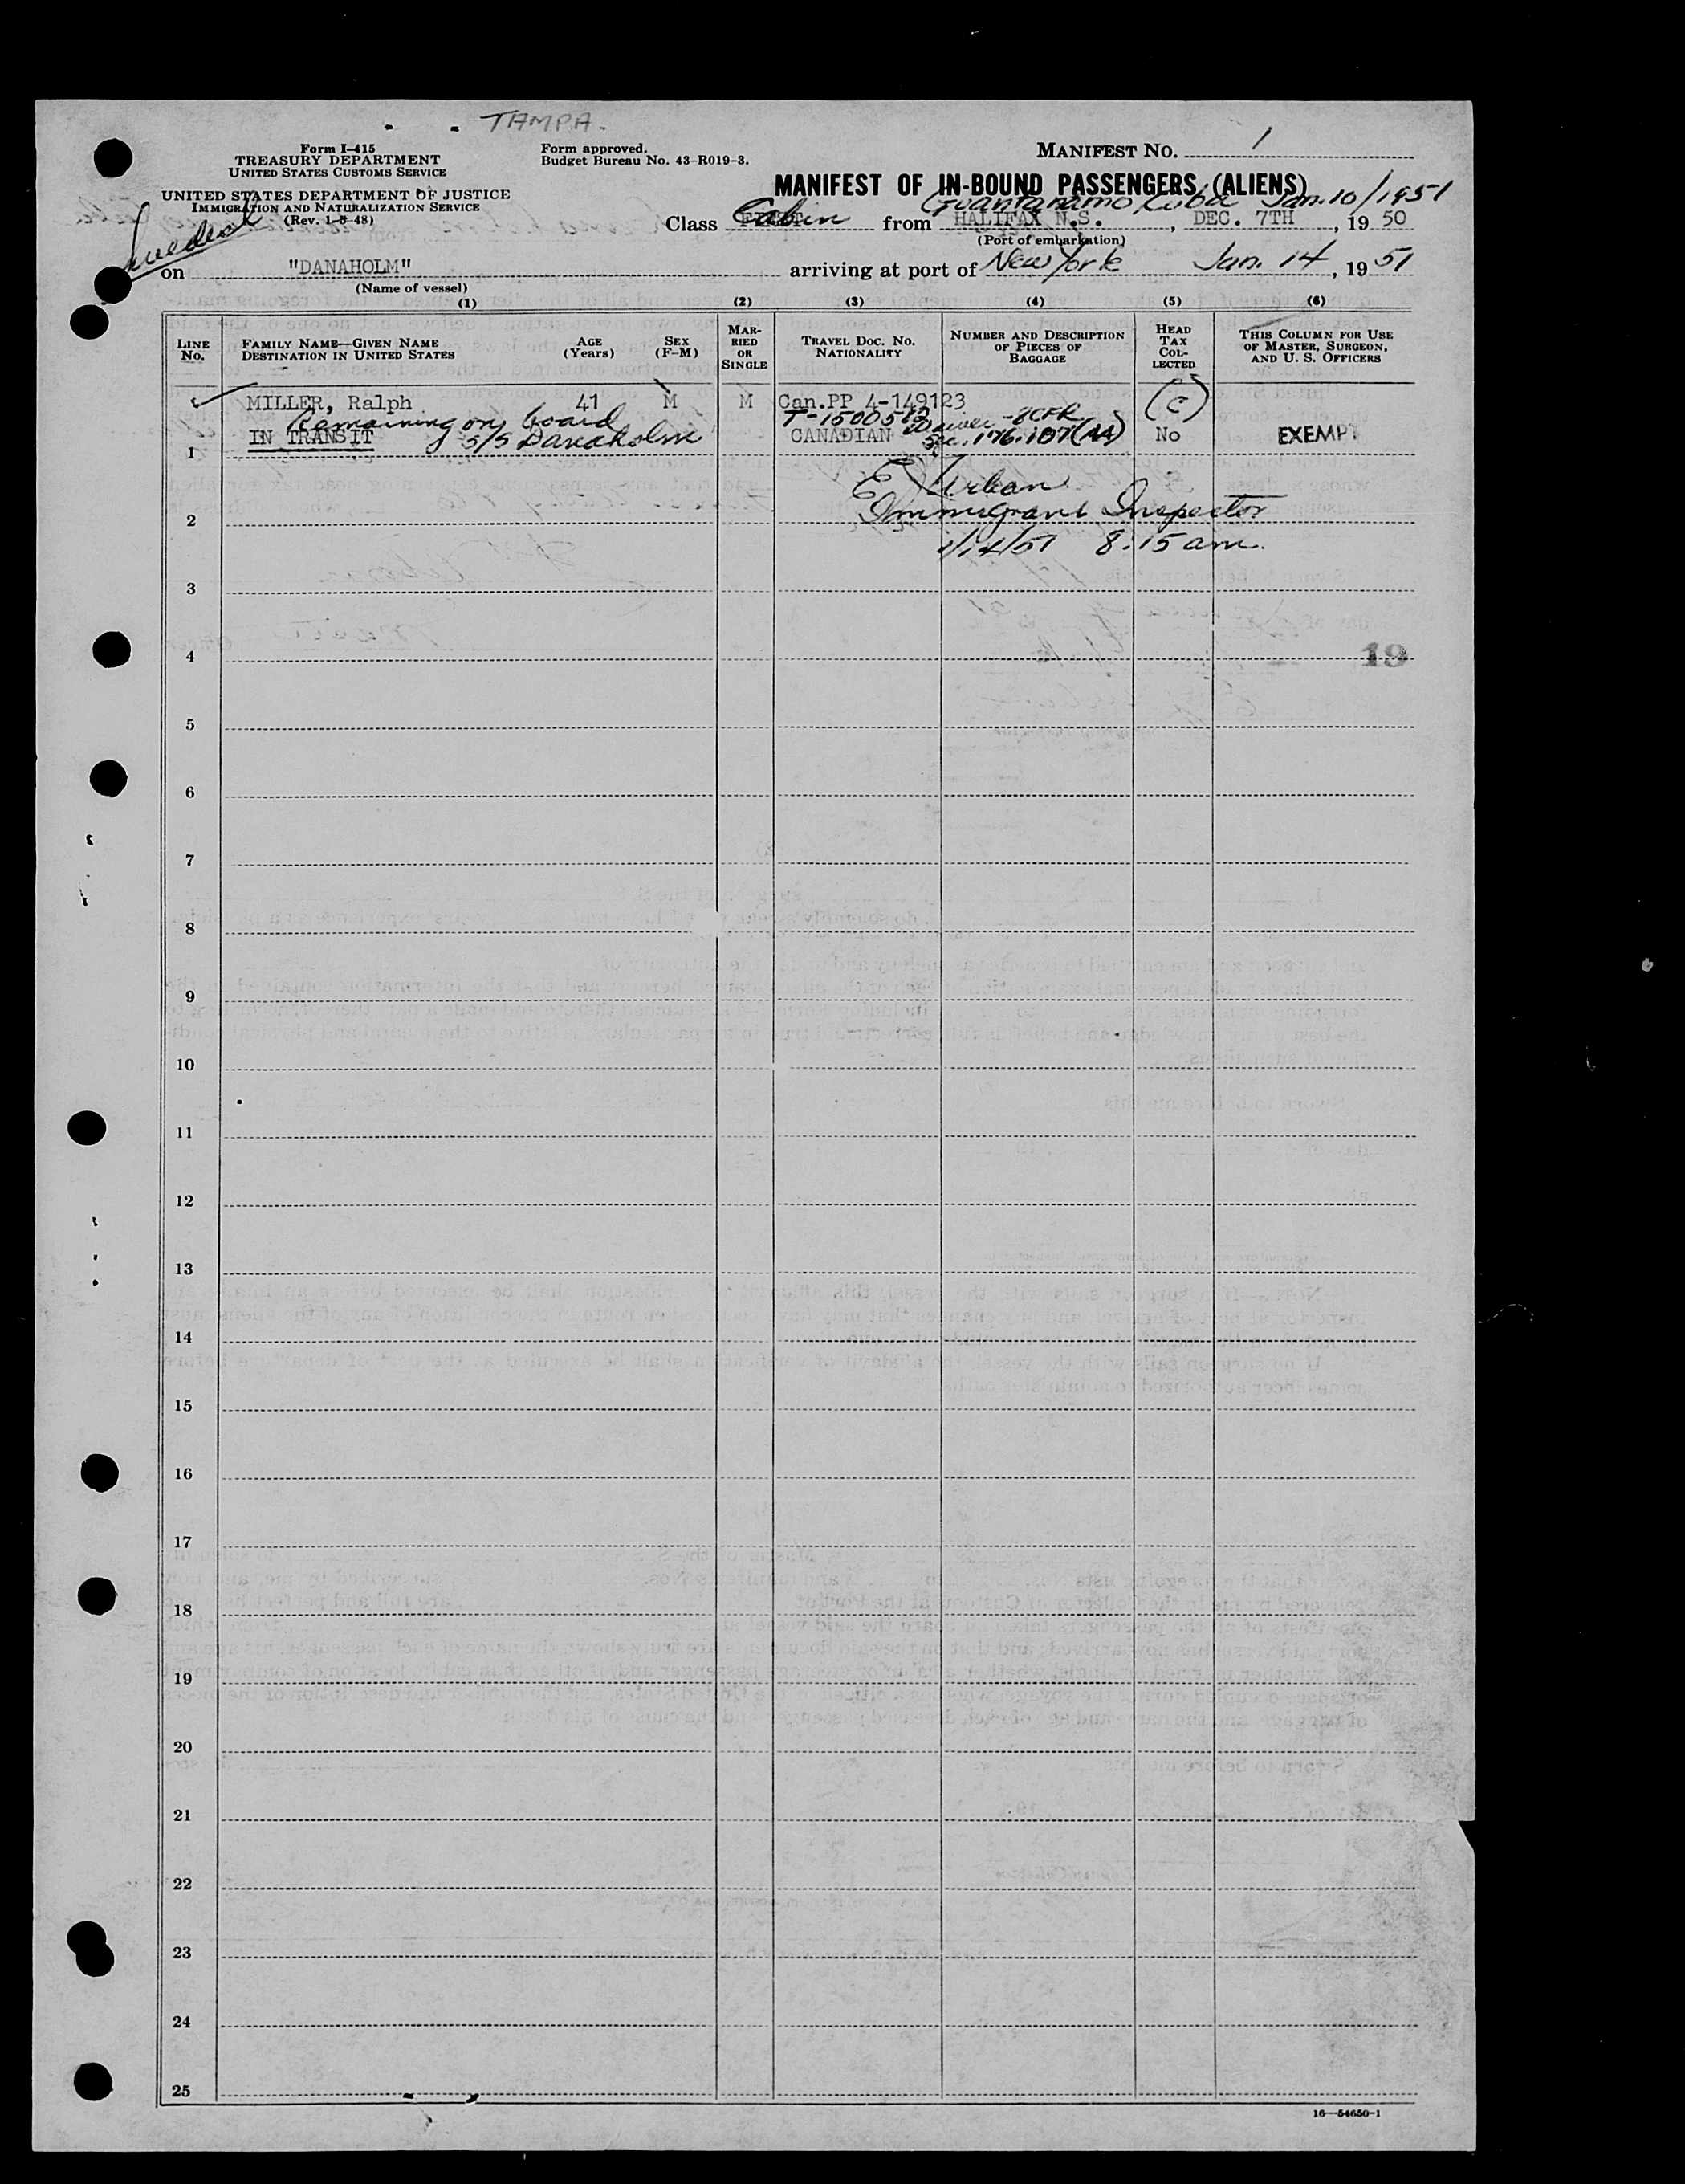 TAMPA.
Form I-415
TREASURY DEPARTMENT
UNITED STATES CUSTOMS SERVICE
Form approved.
Budget Bureau No. 43-R019-3.
MANIFEST NO. 1
UNITED STATES DEPARTMENT OF JUSTICE
IMMIGRATION AND NATURALIZATION SERVICE
(Rev. 1-5-48)
MANIFEST OF IN-BOUND PASSENGERS (ALIENS)
Guantanamo Cuba Jan. 10/1951
Class Cabin from HALIFAX N.S., DEC. 7TH, 19 50
(Port of embarkation)
Swedish
on "DANAHOLM" arriving at port of New York Jan. 14, 19 51
(Name of vessel)
(1) (2) (3) (4) (5) (6)
LINE No. FAMILY NAME—GIVEN NAME DESTINATION IN UNITED STATES AGE (Years) SEX (F-M) MARRIED OR SINGLE TRAVEL DOC. NO. NATIONALITY NUMBER AND DESCRIPTION OF PIECES OF BAGGAGE HEAD TAX COLLECTED THIS COLUMN FOR USE OF MASTER, SURGEON, AND U. S. OFFICERS
MILLER, Ralph 41 M M Can.PP 4-149123 (C)
Remaining on board T-1500512 Waiver - 8CFR
IN TRANSIT S/S Danaholm CANADIAN Sec. 176.107(AA) No EXEMPT
1
E Urban
2 Immigrant Inspector
1/14/51 8:15 am.
3
4 19
5
6
7
8
9
10
11
12
13
14
15
16
17
18
19
20
21
22
23
24
25
16—54650-1